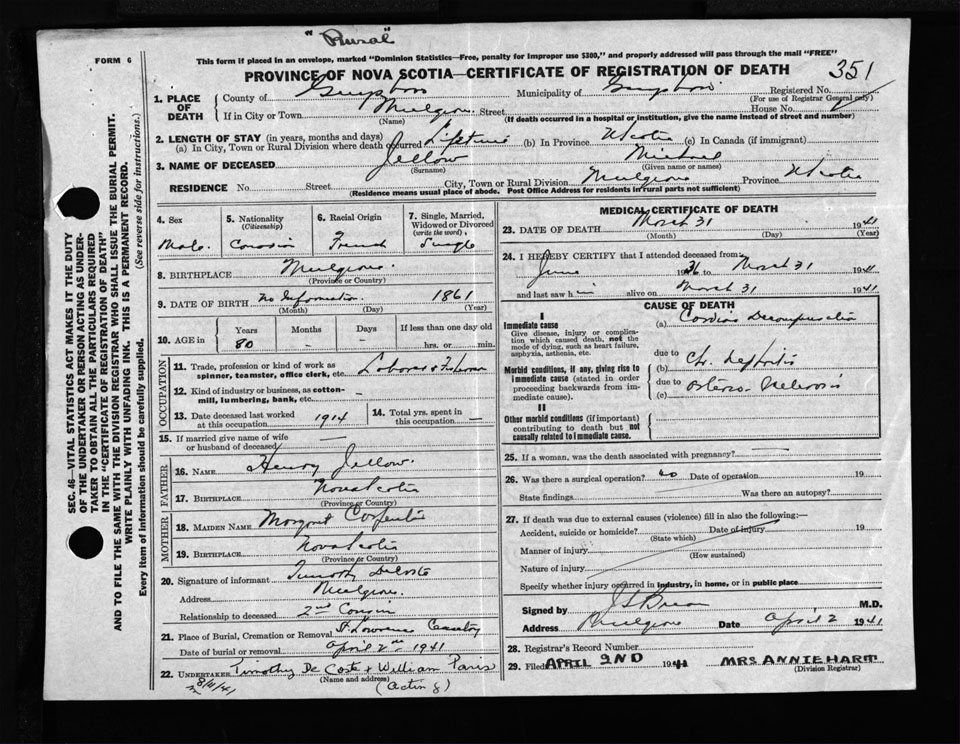 "Rural"
FORM 6
This form if placed in an envelope, marked "Dominion Statistics—Free, penalty for improper use $300," and properly addressed will pass through the mail "FREE"
PROVINCE OF NOVA SCOTIA—CERTIFICATE OF REGISTRATION OF DEATH
351
SEC. 46—VITAL STATISTICS ACT MAKES IT THE DUTY
OF THE UNDERTAKER OR PERSON ACTING AS UNDER-
TAKER TO OBTAIN ALL THE PARTICULARS REQUIRED
IN THE "CERTIFICATE OF REGISTRATION OF DEATH"
AND TO FILE THE SAME WITH THE DIVISION REGISTRAR WHO SHALL ISSUE THE BURIAL PERMIT.
WRITE PLAINLY WITH UNFADING INK. THIS IS A PERMANENT RECORD.
Every item of information should be carefully supplied. (See reverse side for instructions.)
1. PLACE OF DEATH
County of Guysboro Municipality of Guysboro Registered No.
(For use of Registrar General only)
If in City or Town Mulgrave Street House No.
(Name) (If death occurred in a hospital or institution, give the name instead of street and number)
2. LENGTH OF STAY (in years, months and days)
(a) In City, Town or Rural Division where death occurred Lifetime (b) In Province N Scotia (c) In Canada (if immigrant)
3. NAME OF DECEASED Jellow Michael
(Surname) (Given name or names)
RESIDENCE No. Street City, Town or Rural Division Mulgrave Province N Scotia
(Residence means usual place of abode. Post Office Address for residents in rural parts not sufficient)
4. Sex
Male
5. Nationality (Citizenship)
Canadian
6. Racial Origin
French
7. Single, Married, Widowed or Divorced (write the word)
Single
8. BIRTHPLACE Mulgrave
(Province or Country)
9. DATE OF BIRTH no Information 1861
(Month) (Day) (Year)
10. AGE in Years Months Days If less than one day old
80 - - hrs. or min.
OCCUPATION
11. Trade, profession or kind of work as
spinner, teamster, office clerk, etc. Laborer & Fisherman
12. Kind of industry or business, as cotton-
mill, lumbering, bank, etc. —
13. Date deceased last worked
at this occupation 1914
14. Total yrs. spent in
this occupation —
15. If married give name of wife
or husband of deceased —
FATHER
16. NAME Henry Jellow
17. BIRTHPLACE Nova Scotia
(Province or Country)
MOTHER
18. MAIDEN NAME Margaret
19. BIRTHPLACE Nova Scotia
(Province or Country)
20. Signature of informant Timothy DeCoste
Address Mulgrave
Relationship to deceased 2nd Cousin
21. Place of Burial, Cremation or Removal St Lawrence Cemetery
Date of burial or removal April 2nd 1941
22. UNDERTAKER Timothy De Coste & William Paris
(Name and address)
(Acting)
8/4/41
MEDICAL CERTIFICATE OF DEATH
23. DATE OF DEATH March 31 1941
(Month) (Day) (Year)
24. I HEREBY CERTIFY that I attended deceased from:
June 1936 to March 31 1941
and last saw him alive on March 31 1941
CAUSE OF DEATH
I
Immediate cause
Give disease, injury or complica-
tion which caused death, not the
mode of dying, such as heart failure,
asphyxia, asthenia, etc.
(a) Cardiac Decompensation
due to
Morbid conditions, if any, giving rise to
immediate cause (stated in order
proceeding backwards from im-
mediate cause).
(b) Chr. Nephritis
due to
(c) Arterio-Sclerosis
II
Other morbid conditions (if important)
contributing to death but not
causally related to immediate cause.
25. If a woman, was the death associated with pregnancy? —
26. Was there a surgical operation? no Date of operation 19
State findings Was there an autopsy?
27. If death was due to external causes (violence) fill in also the following:—
Accident, suicide or homicide? Date of injury 19
(State which)
Manner of injury
(How sustained)
Nature of injury
Specify whether injury occurred in industry, in home, or in public place
Signed by M.D.
Address Mulgrave Date April 2 1941
28. Registrar's Record Number
29. Filed APRIL 2ND 1941 MRS ANNIE HART
(Division Registrar)